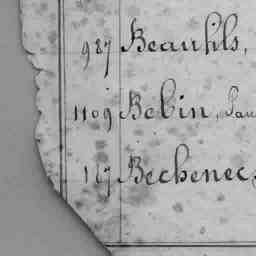 987 Beaufils,
1109 Bebin,
167 Bechenec,